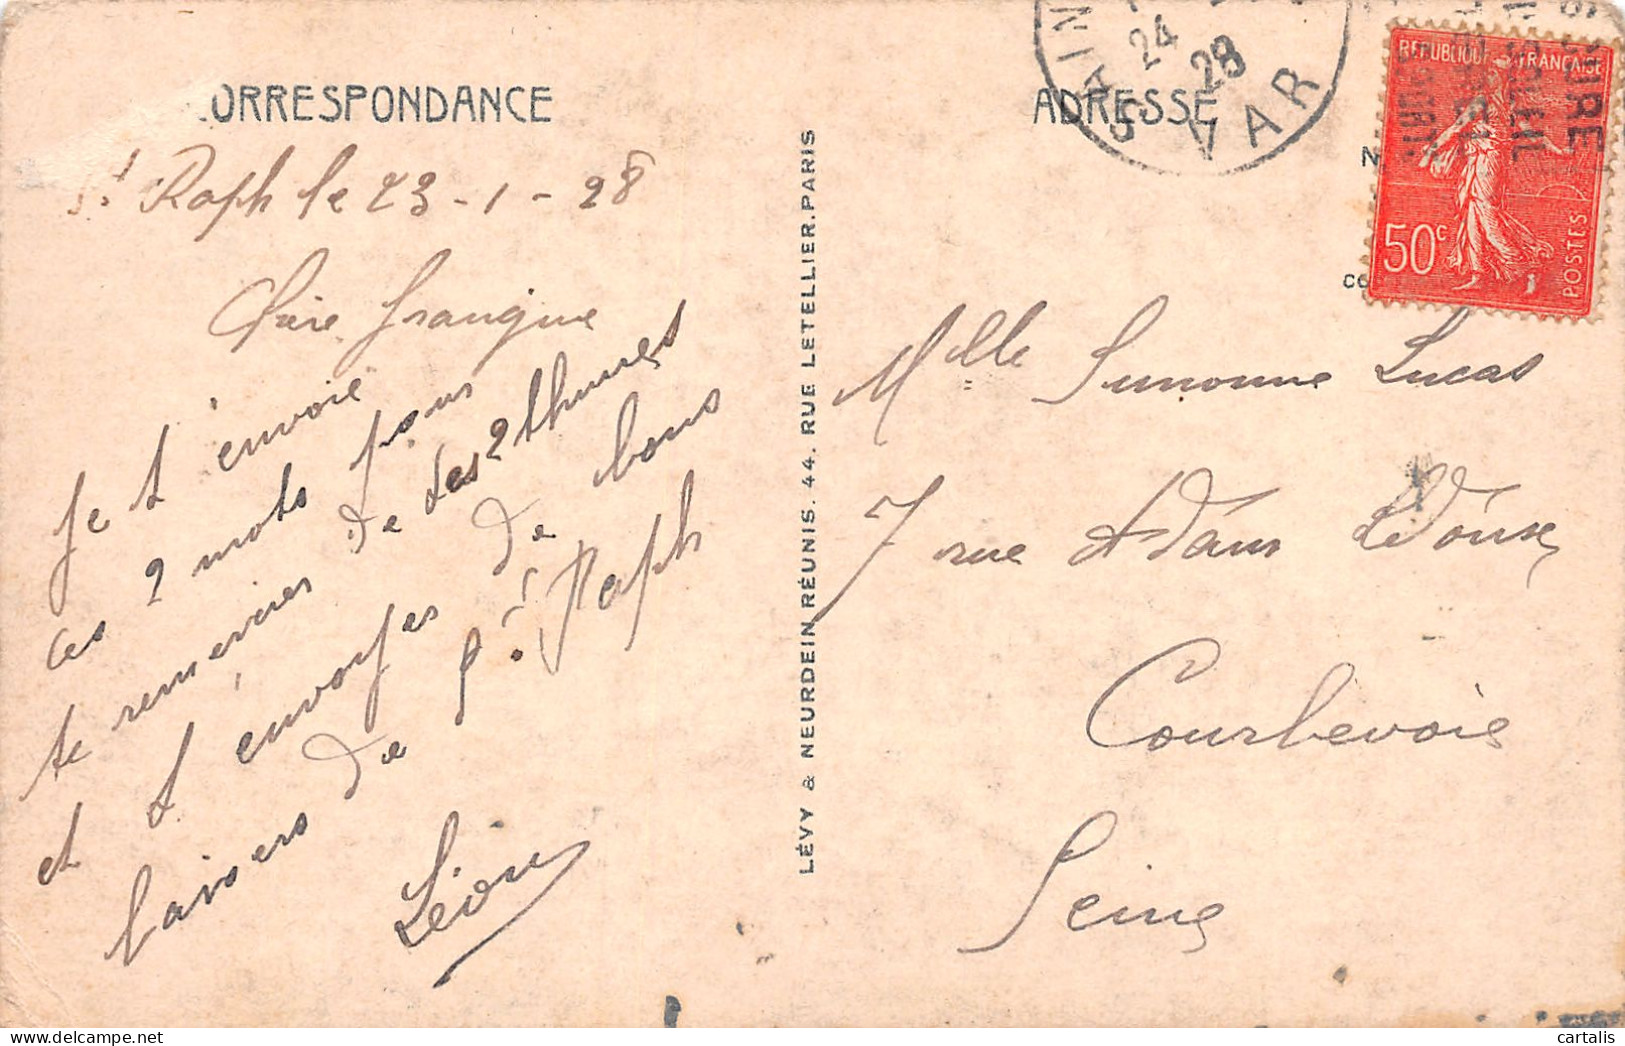 CORRESPONDANCE
St Raph le 23-1-28
Chère frangine
Je t'envoie
ces 2 mots pour
te remercier de tes 2 thunes
et t'envoyer de bons
baisers de St Raph
Léon
LÉVY & NEURDEIN RÉUNIS. 44. RUE LETELLIER. PARIS
ADRESSE
24
28
VAR
REPUBLIQUE FRANÇAISE
50c
POSTES
Mlle Suzanne Lucas
7 rue Adam Ledoux
Courbevoie
Seine
cartalis